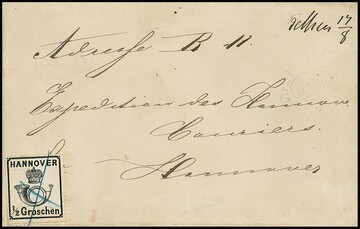 17/8
Adresse R. H.
Expedition des Hannov.
Couriers.
Hannover
HANNOVER
½ Groschen